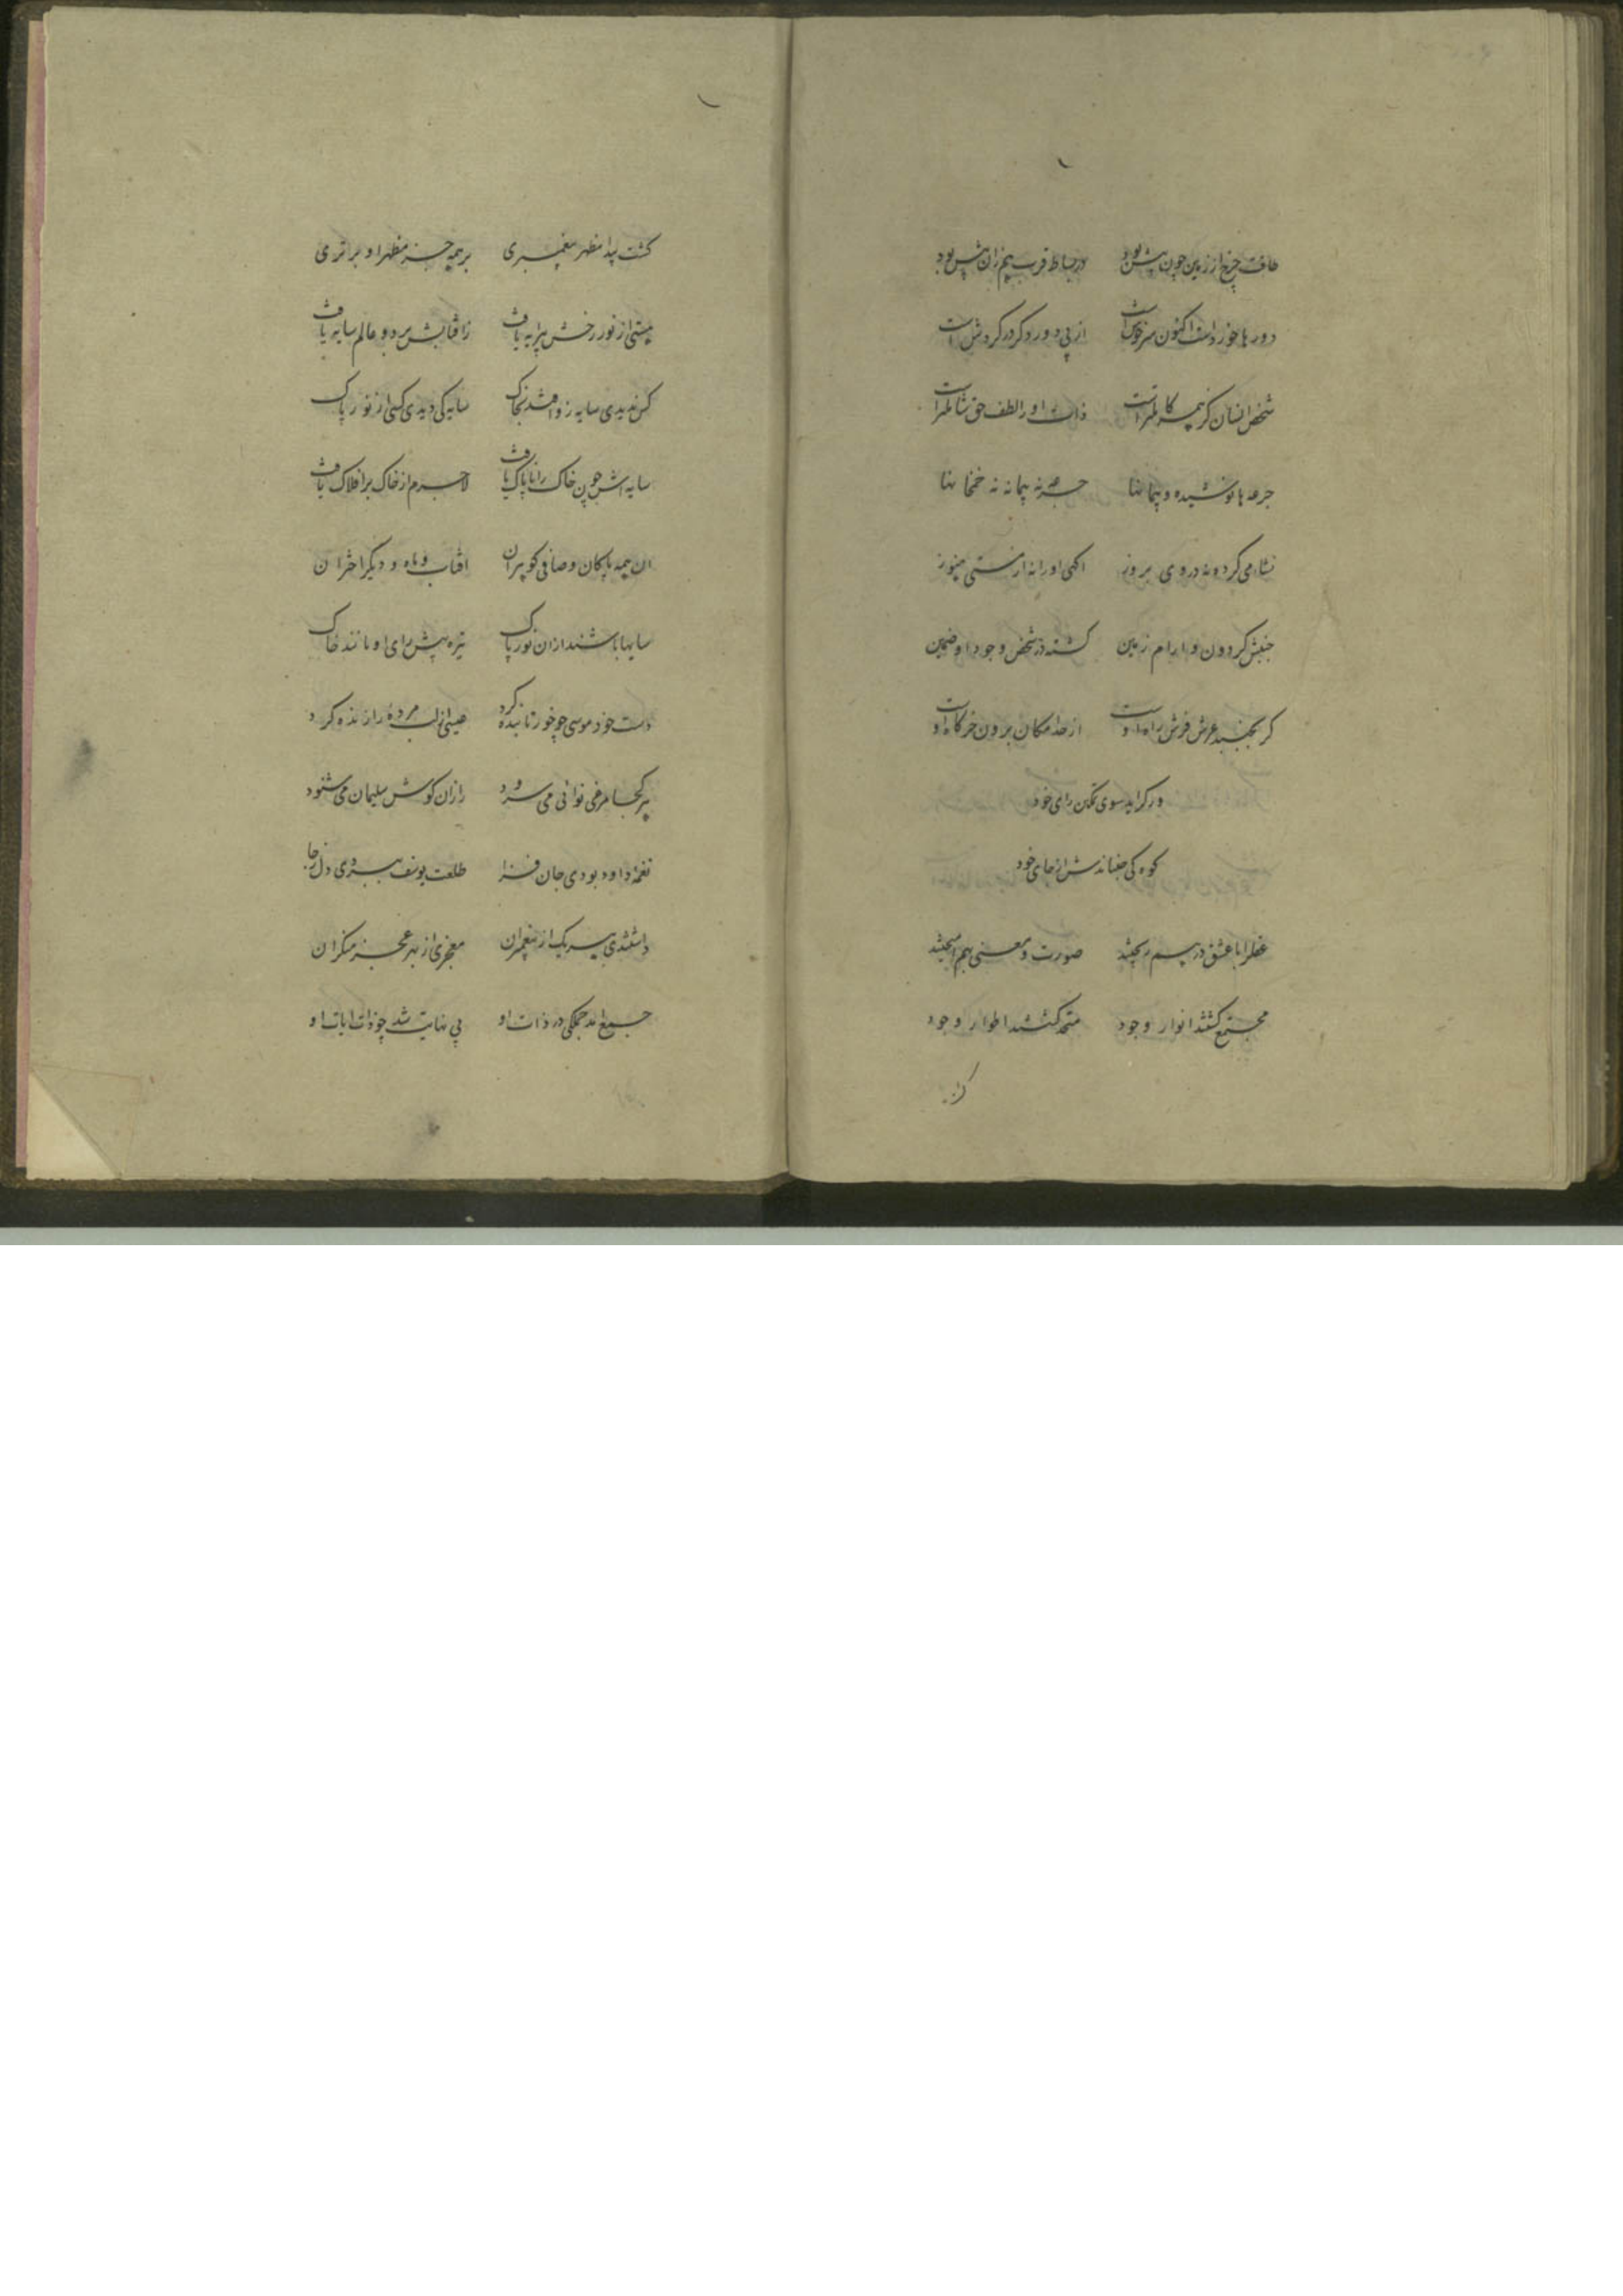 طاقت چرخ از زمین چون بیش بود در بساط قرب هم زان پیش بود
دورها خورداست اکنون سرخوش است از پی دور دگر در گردش است
شخص انسان کز همه کاملتر است ذات او را لطف حق شاملتر است
جرعها نوشیده و پیمانها جرعه نه پیمانه نه خمخانها
نشاء می کرده در وی بروز اگهی او را نه از مستی هنوز
جنبش گردون و ارام زمین گشته در شخص وجود او ضمین
گر بجنبد عرش فرش راه اوست از حد امکان برون خرگاه او
ور گراید سوی تمکن رای خود
کوه کی جنباندش از جای خود
عقل را با عشق در هم ریختند صورت و معنی بهم امیختند
مجتمع گشتند انوار وجود متحد گشتند اطوار وجود
گشت
گشت پیدا مظهر پیغمبری بر همه چیز مظهر او برتری
هستی از نور رخش پیرایه یافت زافتابش هر دو عالم سایه یافت
کس ندیدی سایه زو افتد بخاک سایه کی دیدی کسی از نور پاک
سایه اش چون خاک را ناپاک یافت لاجرم از خاک بر افلاک یافت
ان همه پاکان و صافی گوهران افتاب و ماه و دیگر اختران
سایها باشند از ان نور پاک تیره پیش رای او مانند خاک
دست خود موسی چو خور تابنده کرد عیسی از لب مرده را زنده کرد
هر کجا مرغی نوائی می سرود رازان گوش سلیمان می شنود
نغمهٔ داود بودی جان فزا طلعت یوسف ببردی دل ز جا
داشتندی هر یک از پیغمبران معجزی از بهر عجز منکران
جمع امد جملگی در ذات او بی نهایت شد چو ذات ایات او